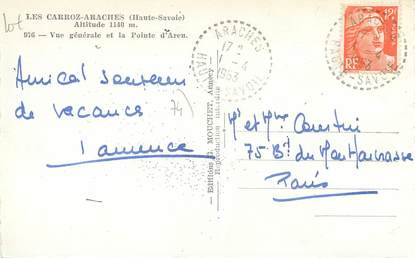 LES CARROZ-ARACHES (Haute-Savoie)
Altitude 1140 m.
976 - Vue générale et la Pointe d'Areu.
Amical souvenir
de vacances
74
Editions G. MOUCHET, Annecy
Reproduction interdite
ARACHES
17 2
-4
1953
HAUTE SAVOIE
12F
RF
Mr et Mme
75 Bd du Montparnasse
Paris